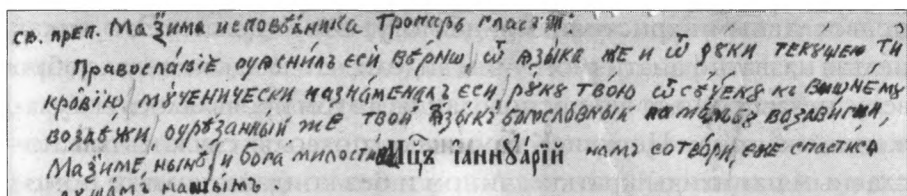 св. преп. Маѯима исповѣдника Тропарь гласъ и҃:
Православїе оуяснилъ еси вѣрны, ѿ языка же и ѿ руки текущею ти
кровїю мученически назнаменалъ еси, руку твою ѿсѣчену къ вышнему
воздежи, оурѣзанный же твой языкъ богословный на мольбу воздвигни,
Маѯиме нынѣ, и бога милостива Мцъ їаннуарїй намъ сотвори, еже спастися
нашымъ.